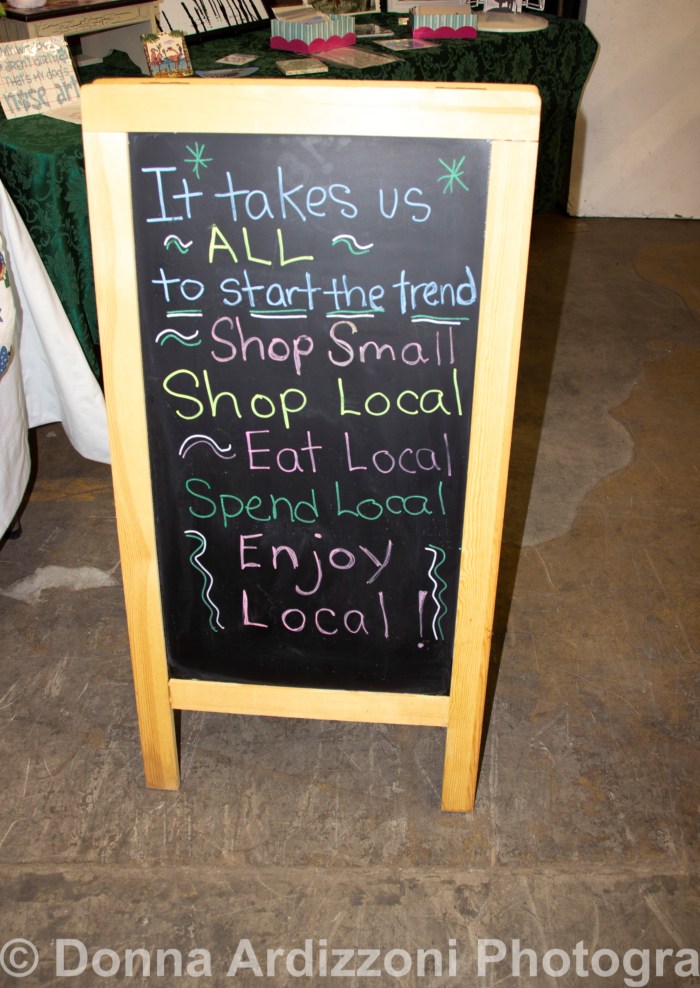 It takes us
~ ALL ~
to start the trend
~ Shop Small
Shop Local
~ Eat Local
Spend Local
Enjoy
Local!
© Donna Ardizzoni Photogra